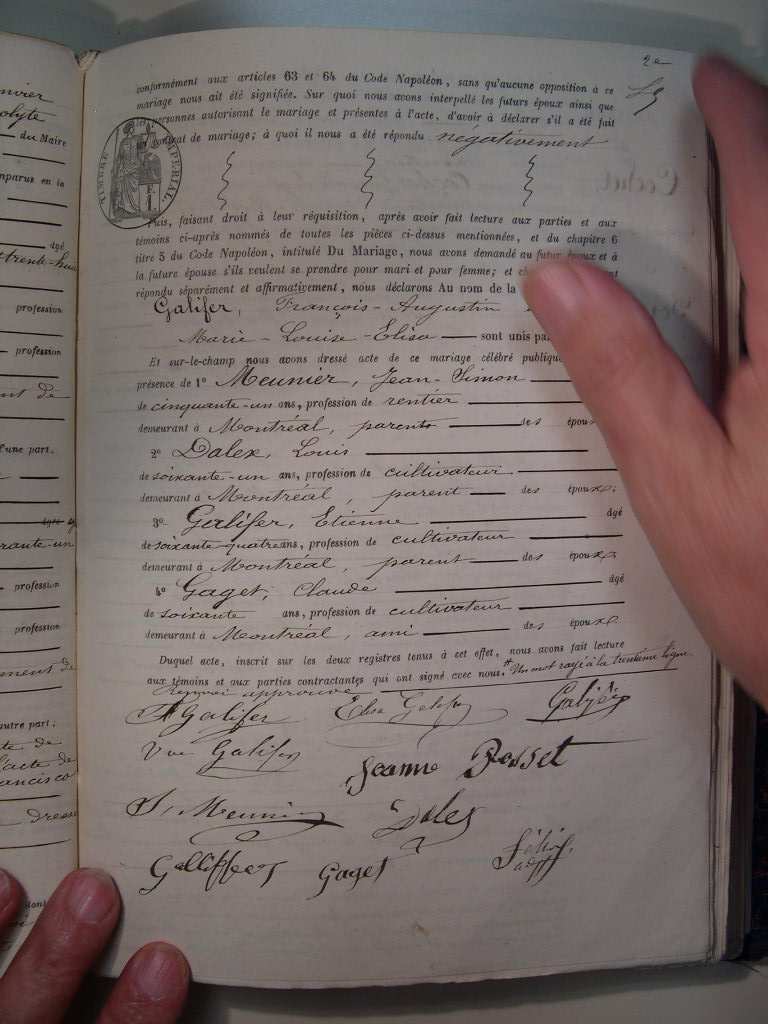 2e
conformément aux articles 63 et 64 du Code Napoléon, sans qu'aucune opposition à ce
mariage nous ait été signifiée. Sur quoi nous avons interpellé les futurs époux ainsi que
personnes autorisant le mariage et présentes à l'acte, d'avoir à déclarer s'il a été fait
contrat de mariage; à quoi il nous a été répondu négativement
TIMBRE IMPERIAL
Puis, faisant droit à leur réquisition, après avoir fait lecture aux parties et aux
témoins ci-après nommés de toutes les pièces ci-dessus mentionnées, et du chapitre 6
titre 5 du Code Napoléon, intitulé Du Mariage, nous avons demandé au futur époux et à
la future épouse s'ils veulent se prendre pour mari et pour femme; et
répondu séparément et affirmativement, nous déclarons Au nom de la
Galifer, François-Augustin
Marie-Louise-Elisa sont unis
Et sur-le-champ nous avons dressé acte de ce mariage célébré
présence de 1° Meunier, Jean-Simon
de cinquante-un ans, profession de rentier
demeurant à Montréal, parents des
2° Dalex, Louis
de soixante-un ans, profession de cultivateur
demeurant à Montréal, parent des époux.
3° Galifer, Etienne âgé
de soixante-quatre ans, profession de cultivateur
demeurant à Montréal, parent des époux
4° Gaget, Claude âgé
de soixante ans, profession de cultivateur
demeurant à Montréal, ami des époux
Duquel acte, inscrit sur les deux registres tenus à cet effet, nous avons fait lecture
aux témoins et aux parties contractantes qui ont signé avec nous. Un mot rayé à la trentième ligne
Renvoi approuvé
A Galifer Elisa
Vve Galifer Jeanne Bosset
S. Meunier Dalex
Galliffer Gaget
du Maire
âgé
profession
profession
d'une part.
profession
profession
autre part.